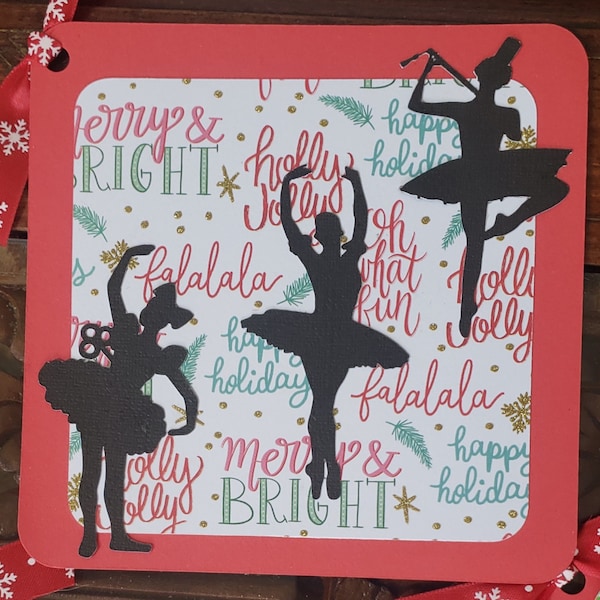 Merry &
BRIGHT
holly
Jolly
happy
holiday
falalala
oh
what
fun
holly
Jolly
happy
holiday
falalala
holly
Jolly
merry &
BRIGHT
happy
holiday